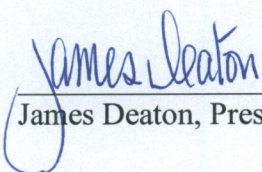 James Deaton
James Deaton, Pres